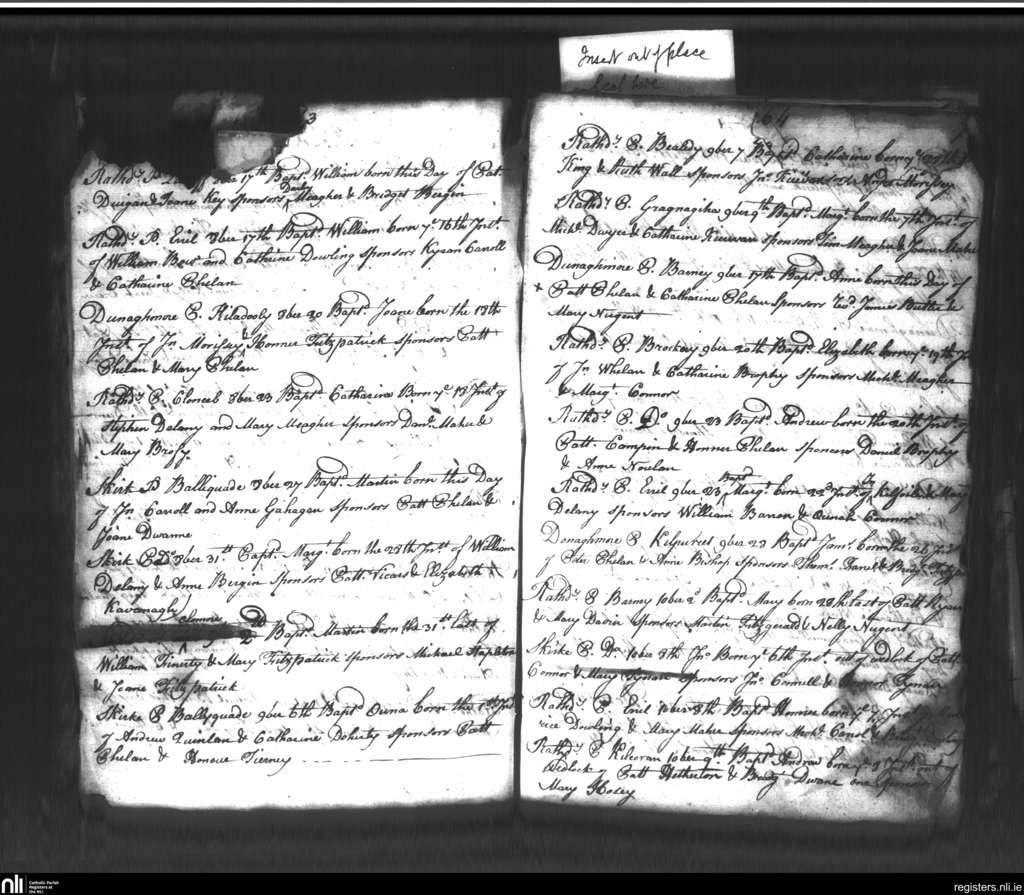 Insert out of place
3
Rathd. P. 17th Bapt. William born this Day of Pat
Duigan & Joane Key sponsors Danl. Meagher & Bridget Bergin
Rathd. P. Eril 8ber 17th Bapt. William born ye. 16th Inst.
of William Bowe and Catherine Dowling sponsors Kyran Carroll
& Catharine Phelan
Dunaghmore P. Kiladooly 8ber 20 Bapt. Joane born the 13th
Inst. of Jn. Morissy & Honner Fitzpatrick sponsors Patt
Phelan & Mary Phelan
Rathd. P. Cloneeb 8ber 23 Bapt. Catharine Born ye. 13 Inst. of
Stephen Delany and Mary Meagher sponsors Danl. Maher &
Mary Brofy.
Skirk P. Balliquade 8ber 27 Bapt. Martin born this Day
of Jn. Carroll and Anne Gahagan sponsors Patt Phelan &
Joane Dwanne
Skirk P. Do. 8ber 31st. Bapt. Margt. born the 28th Inst. of William
Delany & Anne Bergin sponsors Patt. Vicars & Elizabeth
Kavanagh
Bapt. Martin born the 31st. last of
William Finerty & Mary Fitzpatrick sponsors Michael Stapleton
& Joane Fitzpatrick
Skirke P. Ballyquade 9ber 6th Bapt. Owna born the 1st Inst
of Andrew Quinlan & Catharine Doherty sponsors Patt
Phelan & Honour Tierney
164
Rathd. P. Bealdy 9ber 7 Bapt. Catharine born ye.
King & Ruth Wall sponsors Jn. & Morissey
Rathd. P. Gragnagiha 9ber 9th Bapt. Marg. born the 7th Inst. of
Michl. Dwyer & Catharine Kirwan sponsors Tim Meagher & Joane Maher
Dunaghmore P. Barney 9ber 17th Bapt. Anne born this day of
+ Patt Phelan & Catharine Phelan sponsors James Butler &
Mary Nugent
Rathd. P. Brockery 9ber 20th Bapt. Elizabeth born ye. 19th In
of Jn. Whelan & Catharine Brophy sponsors Michl. Meagher
& Margt. Connor
Rathd. P. Do. 9ber 23 Bapt. Andrew born the 20th Inst. of
Patt Campin & Honner Phelan sponsors Daniel Brophy
& Anne Nowlan
Rathd. P. Eril 9ber 23 Bapt Margt. born 22d Inst. of Jn & Mary
Delany sponsors William Barron & Connor
Donaghmore P. Kilpurcel 9ber 23 Bapt. Jams. born the 23 Inst.
of Peter Phelan & Anne Bishop sponsors &
Rathd. P. Barney 10ber 2d. Bapt. Mary born 28th last of Patt Kyran
& Mary Davin sponsors Martin Fitzgerald & Nelly Nugent
Skirke P. Do. 10ber 8th Jno. Born ye. 6th Inst. out of wedlock of Patt
Connor & Mary sponsors Jno. Connell &
Rathd. P. Eril 10ber 8th Bapt. Honner born ye.
Dowling & Mary Maher sponsors Michl. Carrol &
Rathd. P. Kilcoran 10ber 9th Bapt. Andrew born ye. 8 Inst out of
Wedlock of Patt Hetherton & Bridgt. Dwane one sponsor
Mary Holey
nli Catholic Parish
Registers at
the NLI
registers.nli.ie